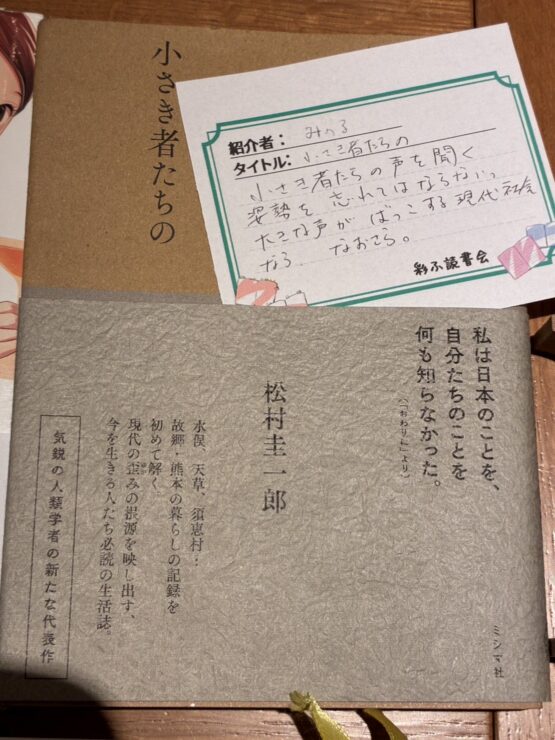 小さき者たちの
紹介者: みのる
タイトル: 小さき者たちの
小さき者たちの声を聞く
姿勢を忘れてはならない。
大きな声がばっこする現代社会
なら なおさら。
彩ふ読書会
私は日本のことを、
自分たちのことを
何も知らなかった。
(「おわりに」より)
松村圭一郎
水俣、天草、須恵村…
故郷・熊本の暮らしの記録を
初めて解く
現代の歪みの根源を映し出す、
今を生きる人たち必読の生活誌。
気鋭の人類学者の新たな代表作
ミシマ社